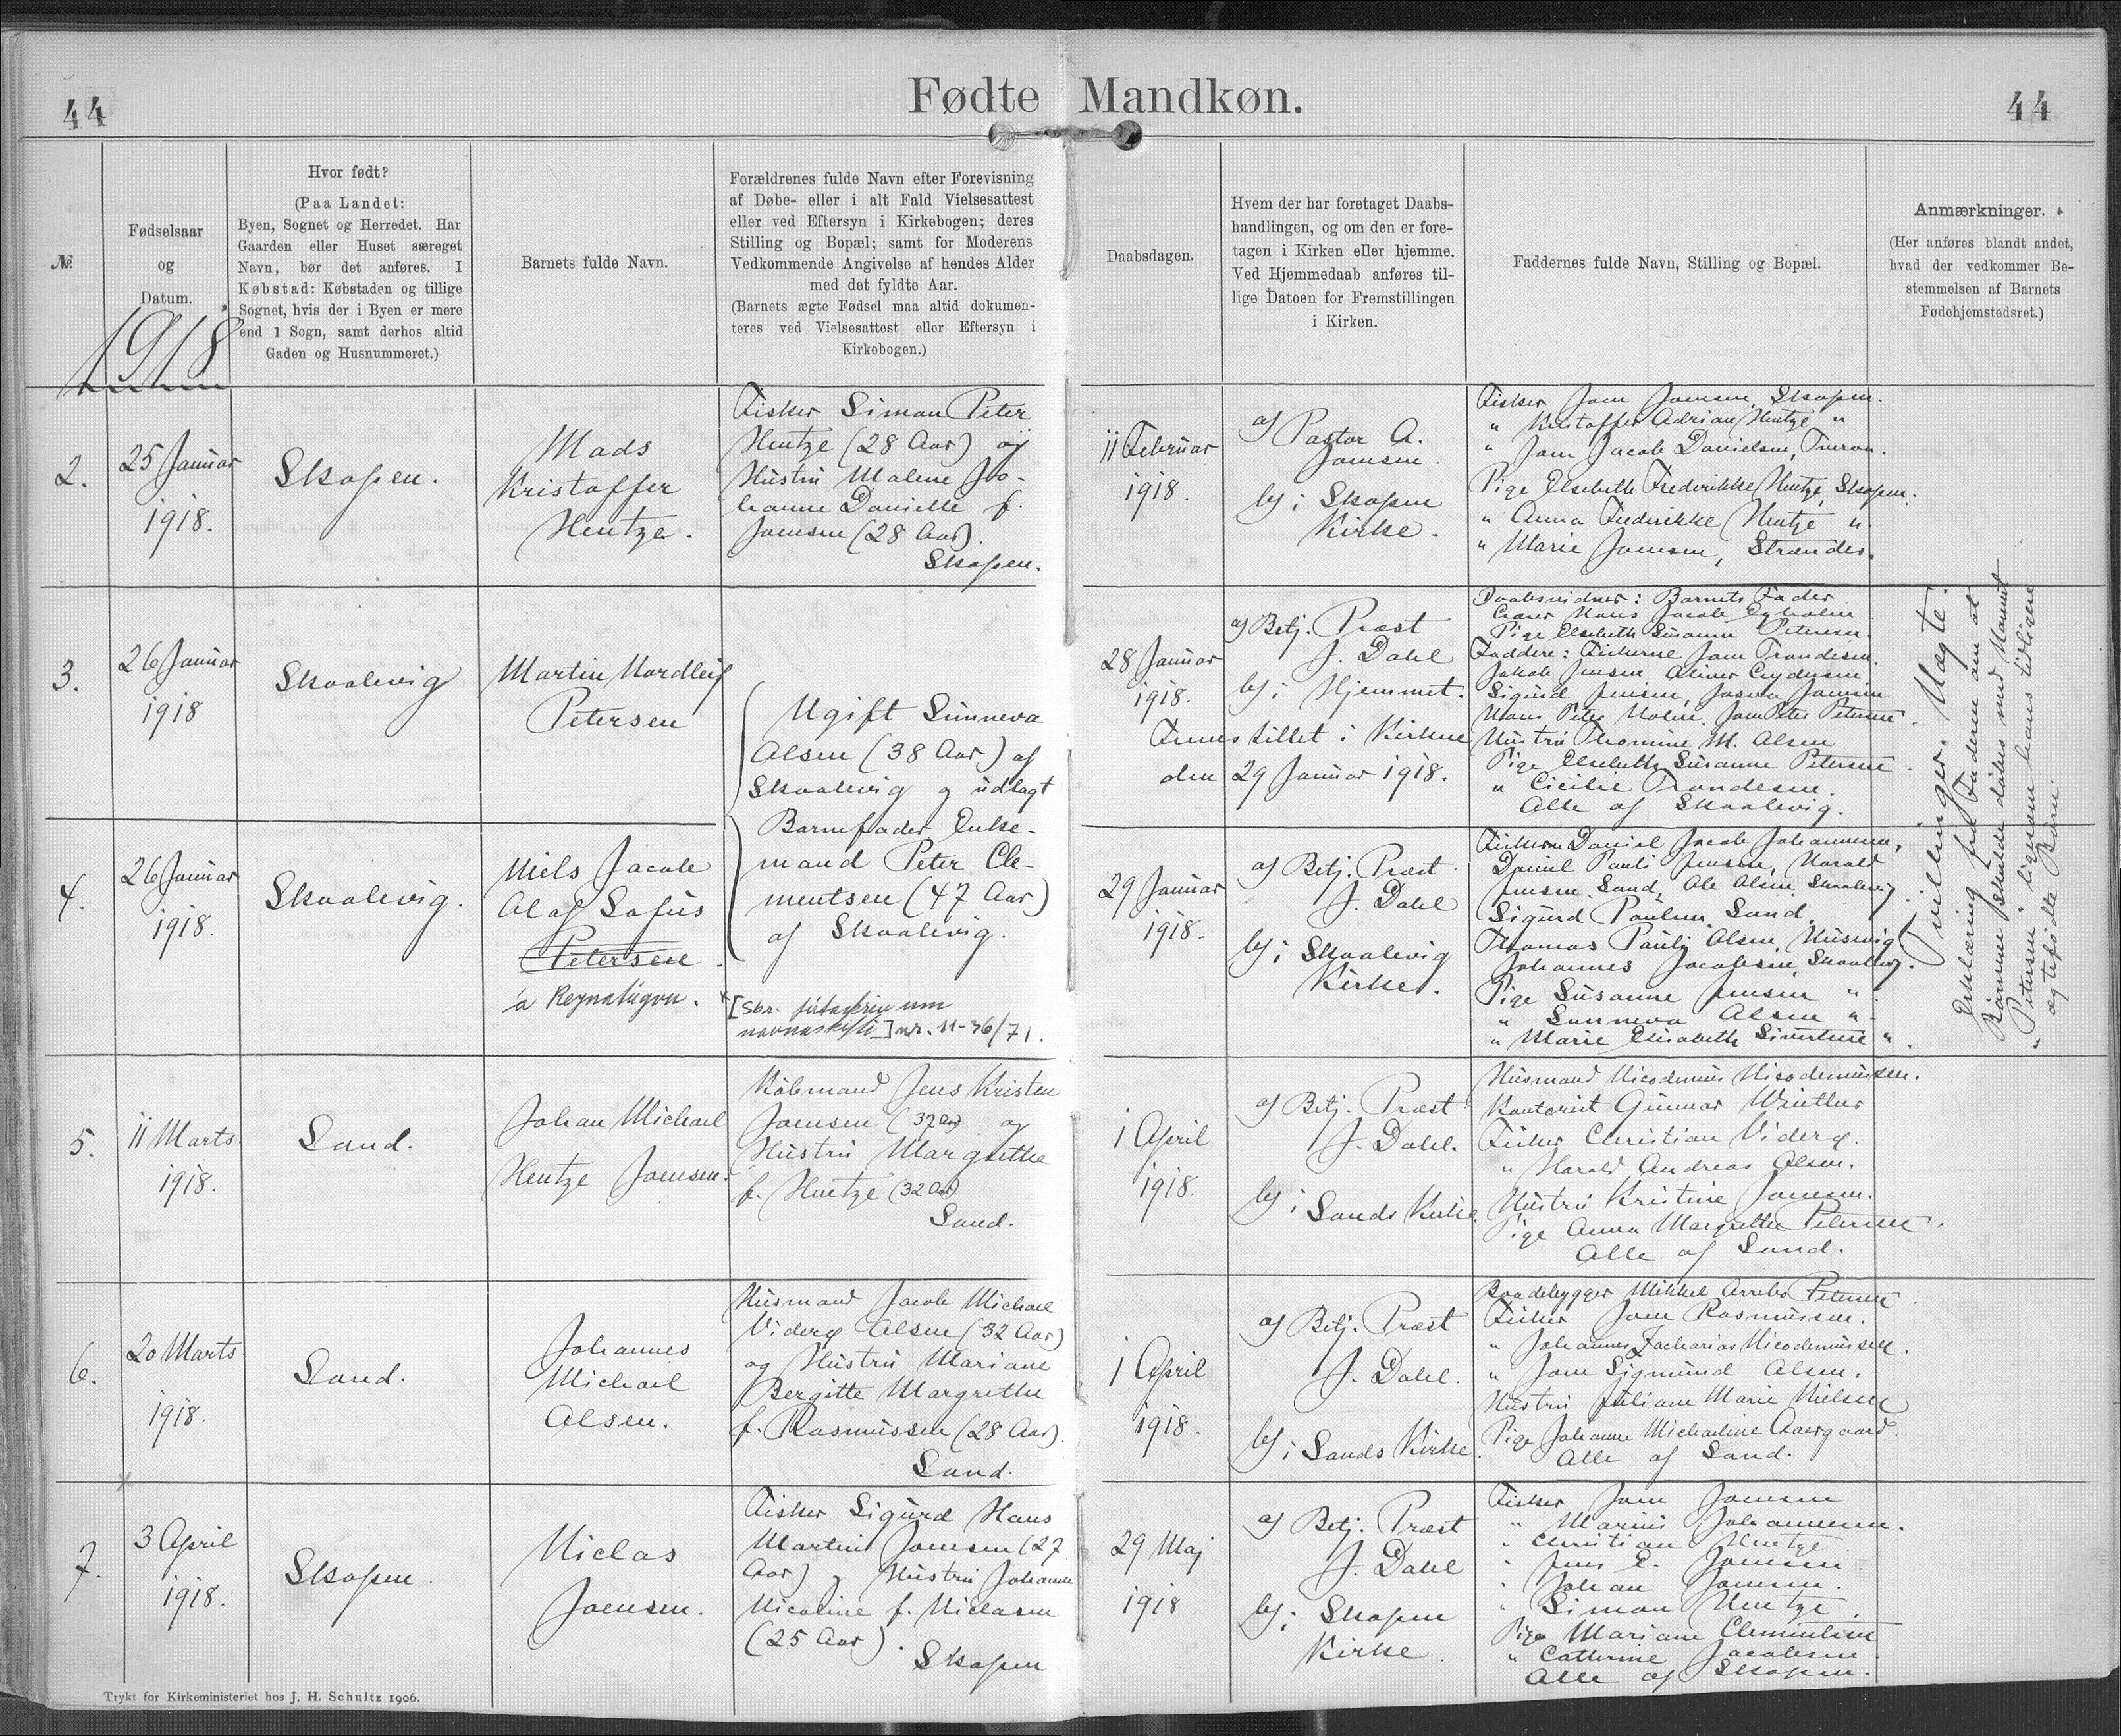 44
Fødte Mandkøn.
44
№
Fødselsaar
og
Datum.
Hvor født?
(Paa Landet:
Byen, Sognet og Herredet. Har
Gaarden eller Huset særeget
Navn, bør det anføres. I
Købstad: Købstaden og tillige
Sognet, hvis der i Byen er mere
end 1 Sogn, samt derhos altid
Gaden og Husnummeret.)
Barnets fulde Navn.
Forældrenes fulde Navn efter Forevisning
af Døbe- eller i alt Fald Vielsesattest
eller ved Eftersyn i Kirkebogen; deres
Stilling og Bopæl; samt for Moderens
Vedkommende Angivelse af hendes Alder
med det fyldte Aar.
(Barnets ægte Fødsel maa altid dokumen-
teres ved Vielsesattest eller Eftersyn i
Kirkebogen.)
Daabsdagen.
Hvem der har foretaget Daabs-
handlingen, og om den er fore-
tagen i Kirken eller hjemme.
Ved Hjemmedaab anføres til-
lige Datoen for Fremstillingen
i Kirken.
Faddernes fulde Navn, Stilling og Bopæl.
Anmærkninger.
(Her anføres blandt andet,
hvad der vedkommer Be-
stemmelsen af Barnets
Fødehjemstedsret.)
1918
2.
25 Januar
1918.
Skopen.
Mads
Kristoffer
Hentze.
Fisker Simon Peter
Hentze (28 Aar) og
Hustru Malene Jo-
hanne Danielle f.
Joensen (28 Aar).
Skopen.
11 Februar
1918.
af Pastor A.
Joensen.
bf i Skopen
Kirke.
Fisker Joen Joensen, Skopen.
" Kristoffer Adrian Hentze "
" Joen Jacob Danielsen,
Pige Elsebeth Frederikke Hentze, Skopen.
" Anna Frederikke Hentze "
" Marie Joensen,
3.
26 Januar
1918
Skaalevig
Martin Nordleif
Petersen
Ugift Sunneva
Olsen (38 Aar) af
Skaalevig og udlagt
Barnefader Enke-
mand Peter Cle-
mentsen (47 Aar)
af Skaalevig.
28 Januar
1918.
af Betj. Præst
J. Dahl
bf i Hjemmet.
Fremstillet i Kirken
den 29 Januar 1918.
Daabsvidner: Barnets Fader
Hans Jacob
Pige Elsebeth Susanne Petersen.
Faddere: Fiskerne Joen Trondesen.
Jakob Jensen, Oliver
Sigurd Jensen, Joensen
Hans Peter Holm, Joen Peter Petersen.
Hustru Thomine M. Olsen
Pige Elsebeth Susanne Petersen.
" Cicilie Trondesen.
Alle af Skaalevig.
Tvillinger. Uægte.
Erklæring fra Faderen om at
Børnene skulde døbes med Navnet
"Petersen" ligesom hans tidligere
ægtefødte Børn.
4.
26 Januar
1918.
Skaalevig.
Niels Jacob
Olaf Sofus
Petersen
á Reynatúgvu.
[Sbr. um
navnaskifti] nr. 11-36/71.
29 Januar
1918.
af Betj. Præst
J. Dahl
bf i Skaalevig
Kirke.
Fiskerne Daniel Jacob Johannesen,
Daniel Pauli Jensen, Harald
Jensen, Sand, Ole Olsen, Skaalevig
Sigurd Poulsen, Sand.
Thomas Pauli Olsen, Husevig
Johannes Jacobsen, Skaalevig.
Pige Susanne Jensen "
" Sunneva Olsen "
" Marie Elisabeth Sivertsen "
5.
11 Marts
1918.
Sand.
Johan Michael
Hentze Joensen.
Købmand Jens Kristen
Joensen (37 Aar) og
Hustru Margrethe
f. Hentze (32 Aar)
Sand.
1 April
1918.
af Betj. Præst
J. Dahl.
bf i Sands Kirke.
Husmand Nicodemus Nicodemussen.
Kontorist Gunnar Winther
Fisker Christian Viderø.
" Harald Andreas Olsen.
Hustru Kristine Joensen.
Pige Anna Margrethe Petersen.
Alle af Sand.
6.
20 Marts
1918.
Sand.
Johannes
Michael
Olsen.
Husmand Jacob Michael
Viderø Olsen (32 Aar)
og Hustru Mariane
Bergitte Margrethe
f. Rasmussen (28 Aar).
Sand.
1 April
1918.
af Betj. Præst
J. Dahl.
bf i Sands Kirke.
Baadebygger Mikkel Arrebo Petersen
Fisker Joen Rasmussen.
" Johannes Zacharias Nicodemussen.
" Joen Sigmund Olsen.
Hustru Juliane Marie Nielsen
Pige Johanne Michaeline Aaergaard.
Alle af Sand.
7.
3 April
1918.
Skopen.
Niclas
Joensen.
Fisker Sigurd Hans
Martin Joensen (27
Aar) og Hustru Johanne
Nicoline f. Niclasen
(25 Aar).
Skopen
29 Maj
1918
af Betj. Præst
J. Dahl
bf i Skopen
Kirke.
Fisker Joen Joensen
" Marius Johannesen.
" Christian Hentze
" Jens E. Joensen.
" Johan Joensen.
" Simon Hentze.
Pige Mariane Clementsen
" Cathrine Jacobsen
Alle af Skopen.
Trykt for Kirkeministeriet hos J. H. Schultz 1906.